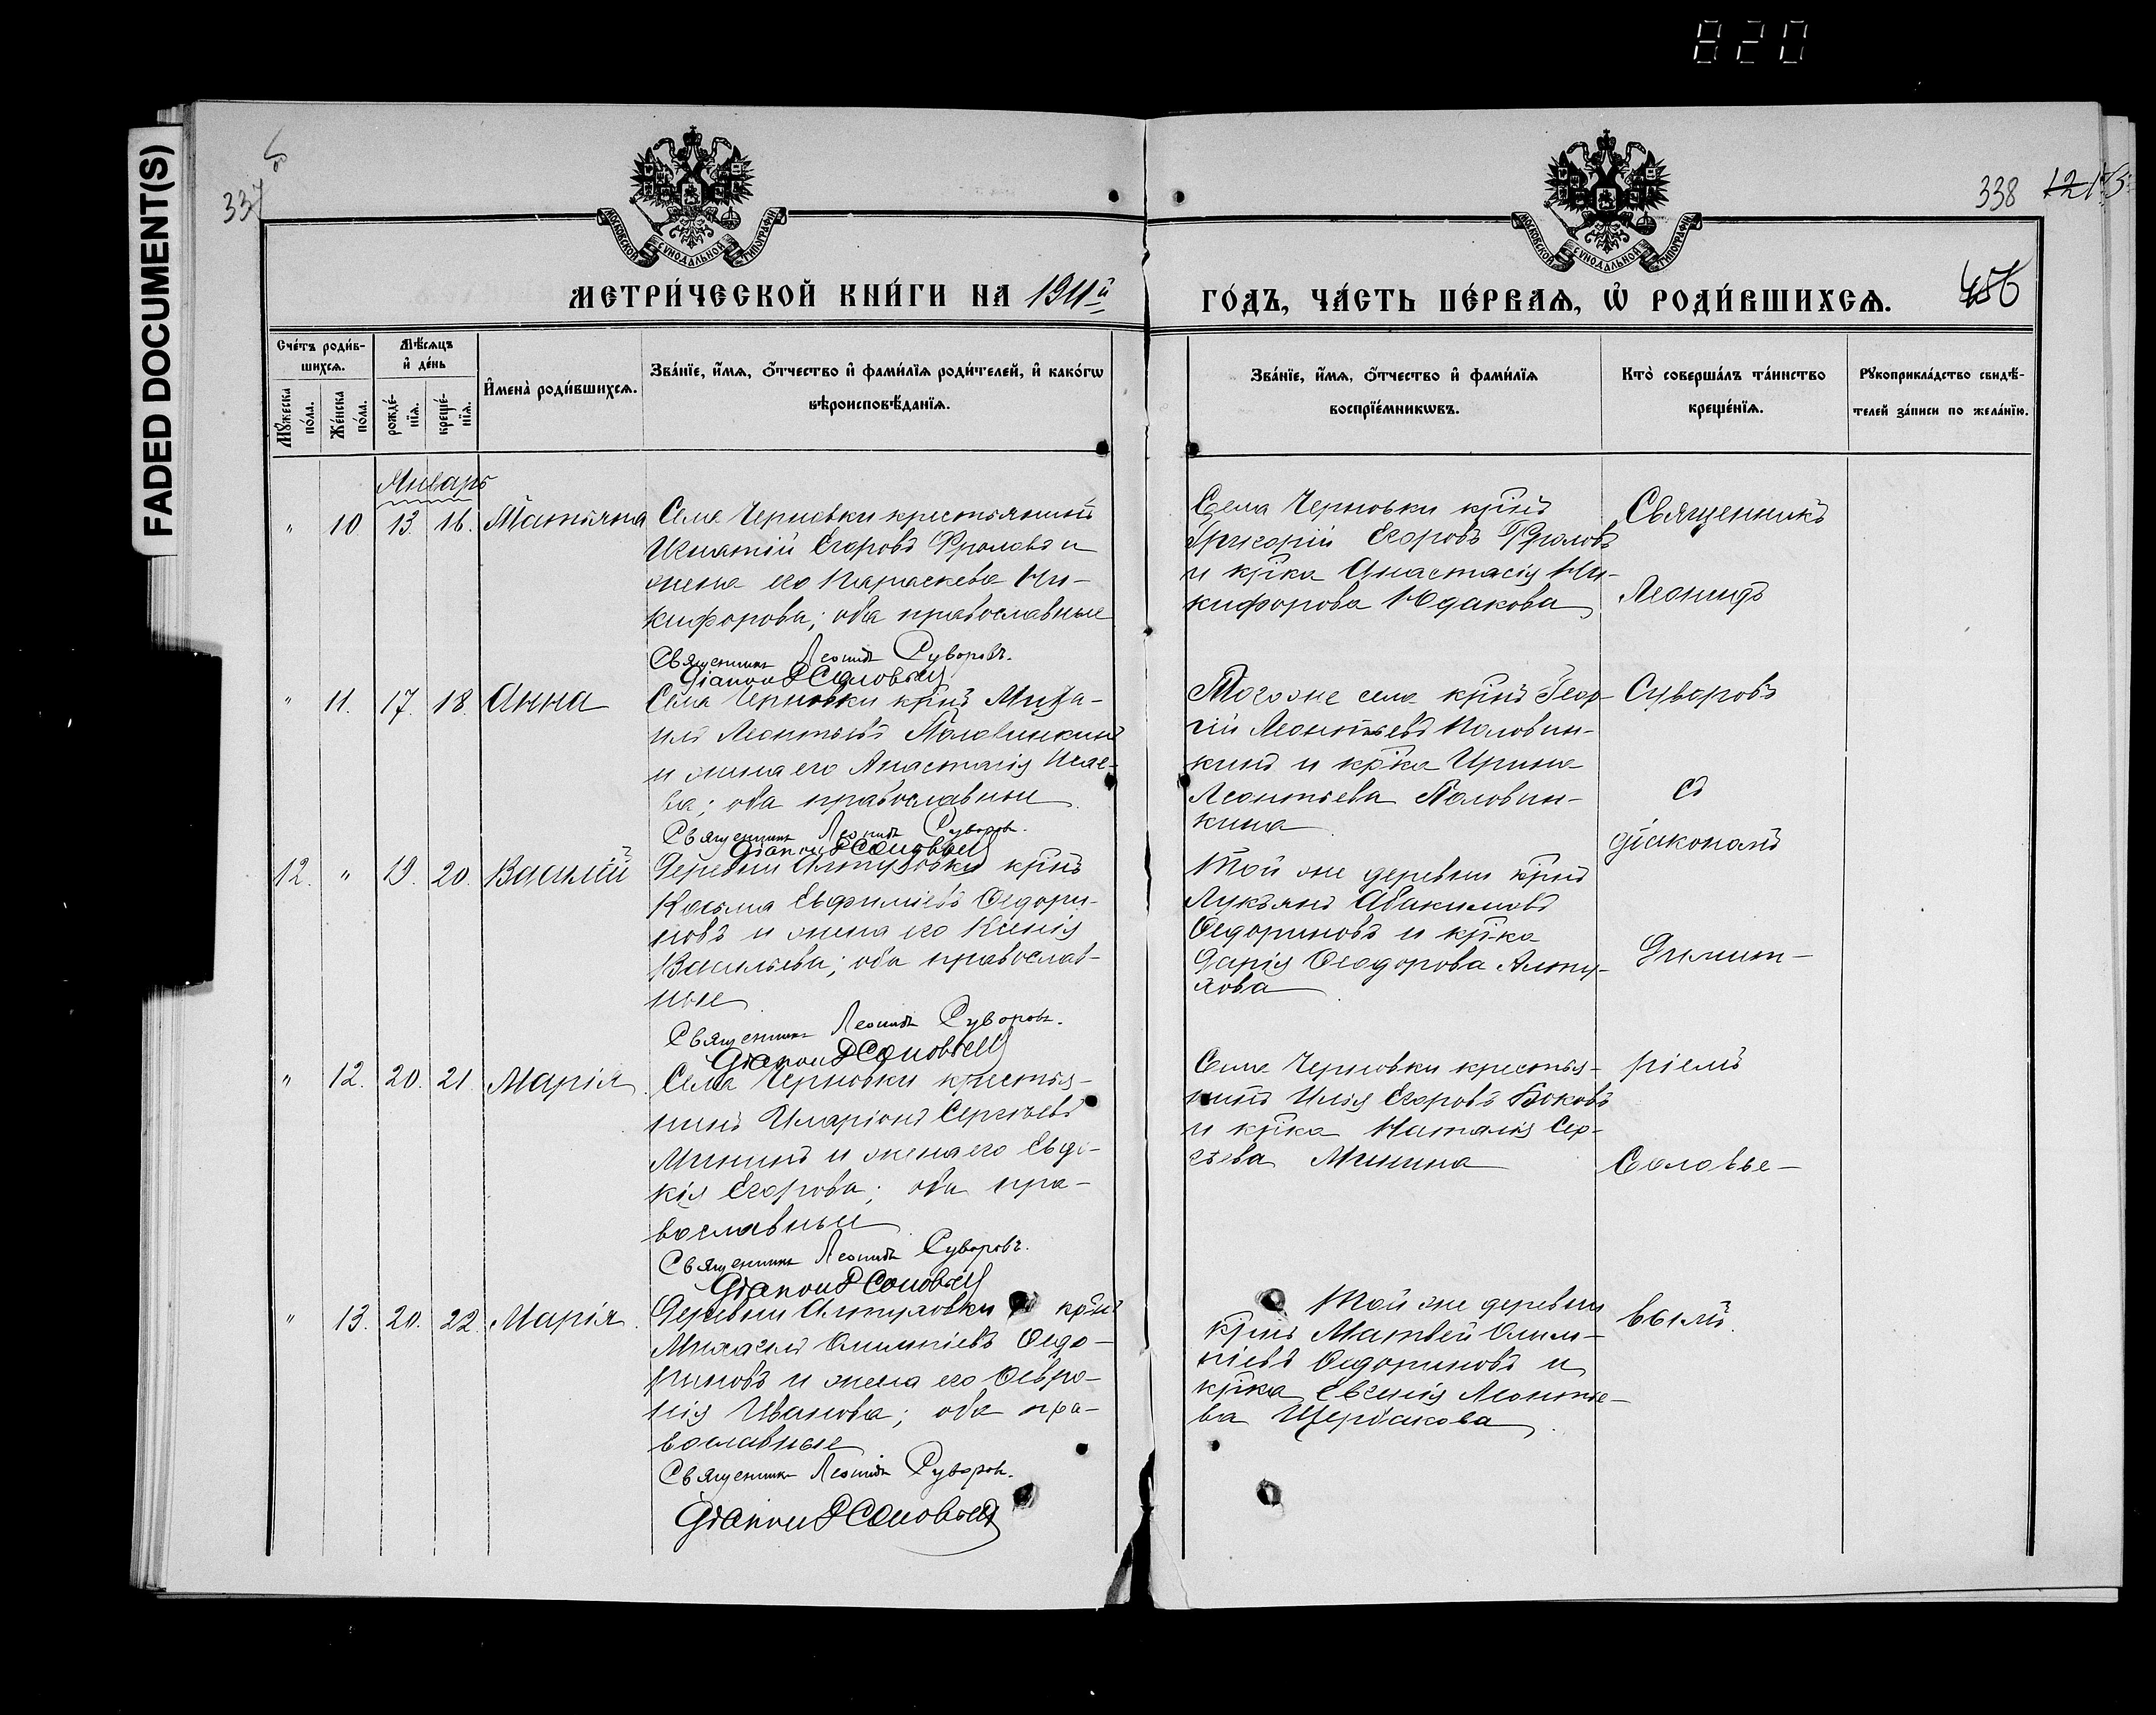 820
FADED DOCUMENT(S)
337
338
1213
456
МОСКОВСКОЙ СѴНОДАЛЬНОЙ ТИПОГРАФІИ
МОСКОВСКОЙ СѴНОДАЛЬНОЙ ТИПОГРАФІИ
МЕТРИ́ЧЕСКОЙ КНИ́ГИ НА 1911й
ГО́ДЪ, ЧА́СТЬ ПЕ́РВАѦ, Ѡ҆ РОДИ́ВШИХСѦ.
Сче́тъ роди́в-
шихсѧ.
Мꙋ́жеска по́ла.
Же́нска по́ла.
Мѣ́сѧцъ
и҆ де́нь
рожде́-
нїѧ.
креще́-
нїѧ.
И҆мена̀ роди́вшихсѧ.
Зва́нїе, и҆́мѧ, ѻ҆́тчество и҆ фами́лїѧ роди́телей, и҆ како́гѡ
вѣроисповѣ́данїѧ.
Зва́нїе, и҆́мѧ, ѻ҆́тчество и҆ фами́лїѧ
воспрїе́мникѡвъ.
Кто̀ соверша́лъ та́инство
креще́нїѧ.
Рꙋкоприкла́дство свидѣ́-
телей за́писи по жела́нїю.
Январь
" 10 13. 16. Татьяна
Села Черновки крестьянинъ
Игнатій Егоровъ Фроловъ и
жена его Параскева Ни-
кифорова; оба православные
Священникъ Леонидъ Суворовъ.
Діаконъ Д Соловьевъ
Села Черновки кр̃нъ
Григорій Егоровъ Фроловъ
и кр̃ка Анастасія Ни-
кифорова Юдакова
Священникъ
Леонидъ
" 11. 17. 18. Анна
Села Черновки кр̃нъ Миха-
илъ Леонтьевъ Половинкинъ
и жена его Анастасія Исае-
ва; оба православные
Священникъ Леонидъ Суворовъ.
Діаконъ Д Соловьевъ
Того же села кр̃нъ Геор-
гій Леонтьевъ Половин-
кинъ и кр̃ка Ирина
Леонтьева Половин-
кина
Суворовъ
съ
діакономъ
12. " 19. 20. Василій
Деревни Алтуховки кр̃нъ
Косьма Евфиміевъ Ѳедори-
новъ и жена его Ксенія
Васильева; оба православ-
ные
Священникъ Леонидъ Суворовъ.
Діаконъ Д Соловьевъ
Той же деревни кр̃нъ
Лукьянъ Абакумовъ
Ѳедориновъ и кр̃ка
Дарія Ѳеодорова Алту-
хова
Димит-
" 12. 20. 21. Марія
Села Черновки крестья-
нинъ Иларіонъ Сергѣевъ
Мининъ и жена его Евдо-
кія Егорова; оба пра-
вославные
Священникъ Леонидъ Суворовъ.
Діаконъ Д Соловьевъ
Села Черновки крестья-
нинъ Илья Егоровъ Боковъ
и кр̃ка Наталія Сер-
гѣева Минина
ріемъ
Соловье-
" 13. 20. 22. Марія
Деревни Алтуховки кр̃нъ
Михаилъ Олимпіевъ Ѳедо-
риновъ и жена его Ѳевро-
нія Иванова; оба пра-
вославные
Священникъ Леонидъ Суворовъ.
Діаконъ Д Соловьевъ
Той же деревни
кр̃нъ Матвей Олим-
піевъ Ѳедориновъ и
кр̃ка Евгенія Леонтье-
ва Щербакова
вымъ.